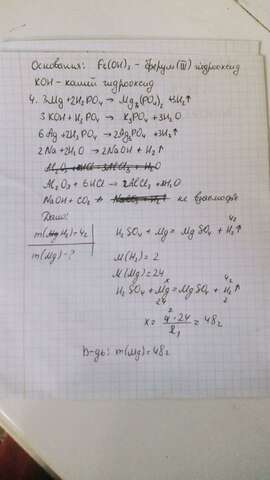 Основания: Fe(OH)₃ - ферум (III) гідрооксид
KOH - калий гідрооксид
4. 3Mg + 2H₃PO₄ → Mg₃(PO₄)₂ + 3H₂↑
3 KOH + H₃PO₄ → K₃PO₄ + 3H₂O
6 Ag + 2H₃PO₄ → 2Ag₃PO₄ + 3H₂↑
2 Na + 2H₂O → 2NaOH + H₂↑
Al₂O₃ + 6HCl → 2AlCl₃ + 3H₂O
NaOH + CO₂ → не взаємодіє
Дано:
m(H₂) = 4г
m(Mg) - ?
H₂SO₄ + Mg = MgSO₄ + H₂↑
4г
M(H₂) = 2
M(Mg) = 24
x 4г
H₂SO₄ + Mg = MgSO₄ + H₂↑
24 2
x = 4 · 24 / 2 = 48г
В-дь: m(Mg) = 48г